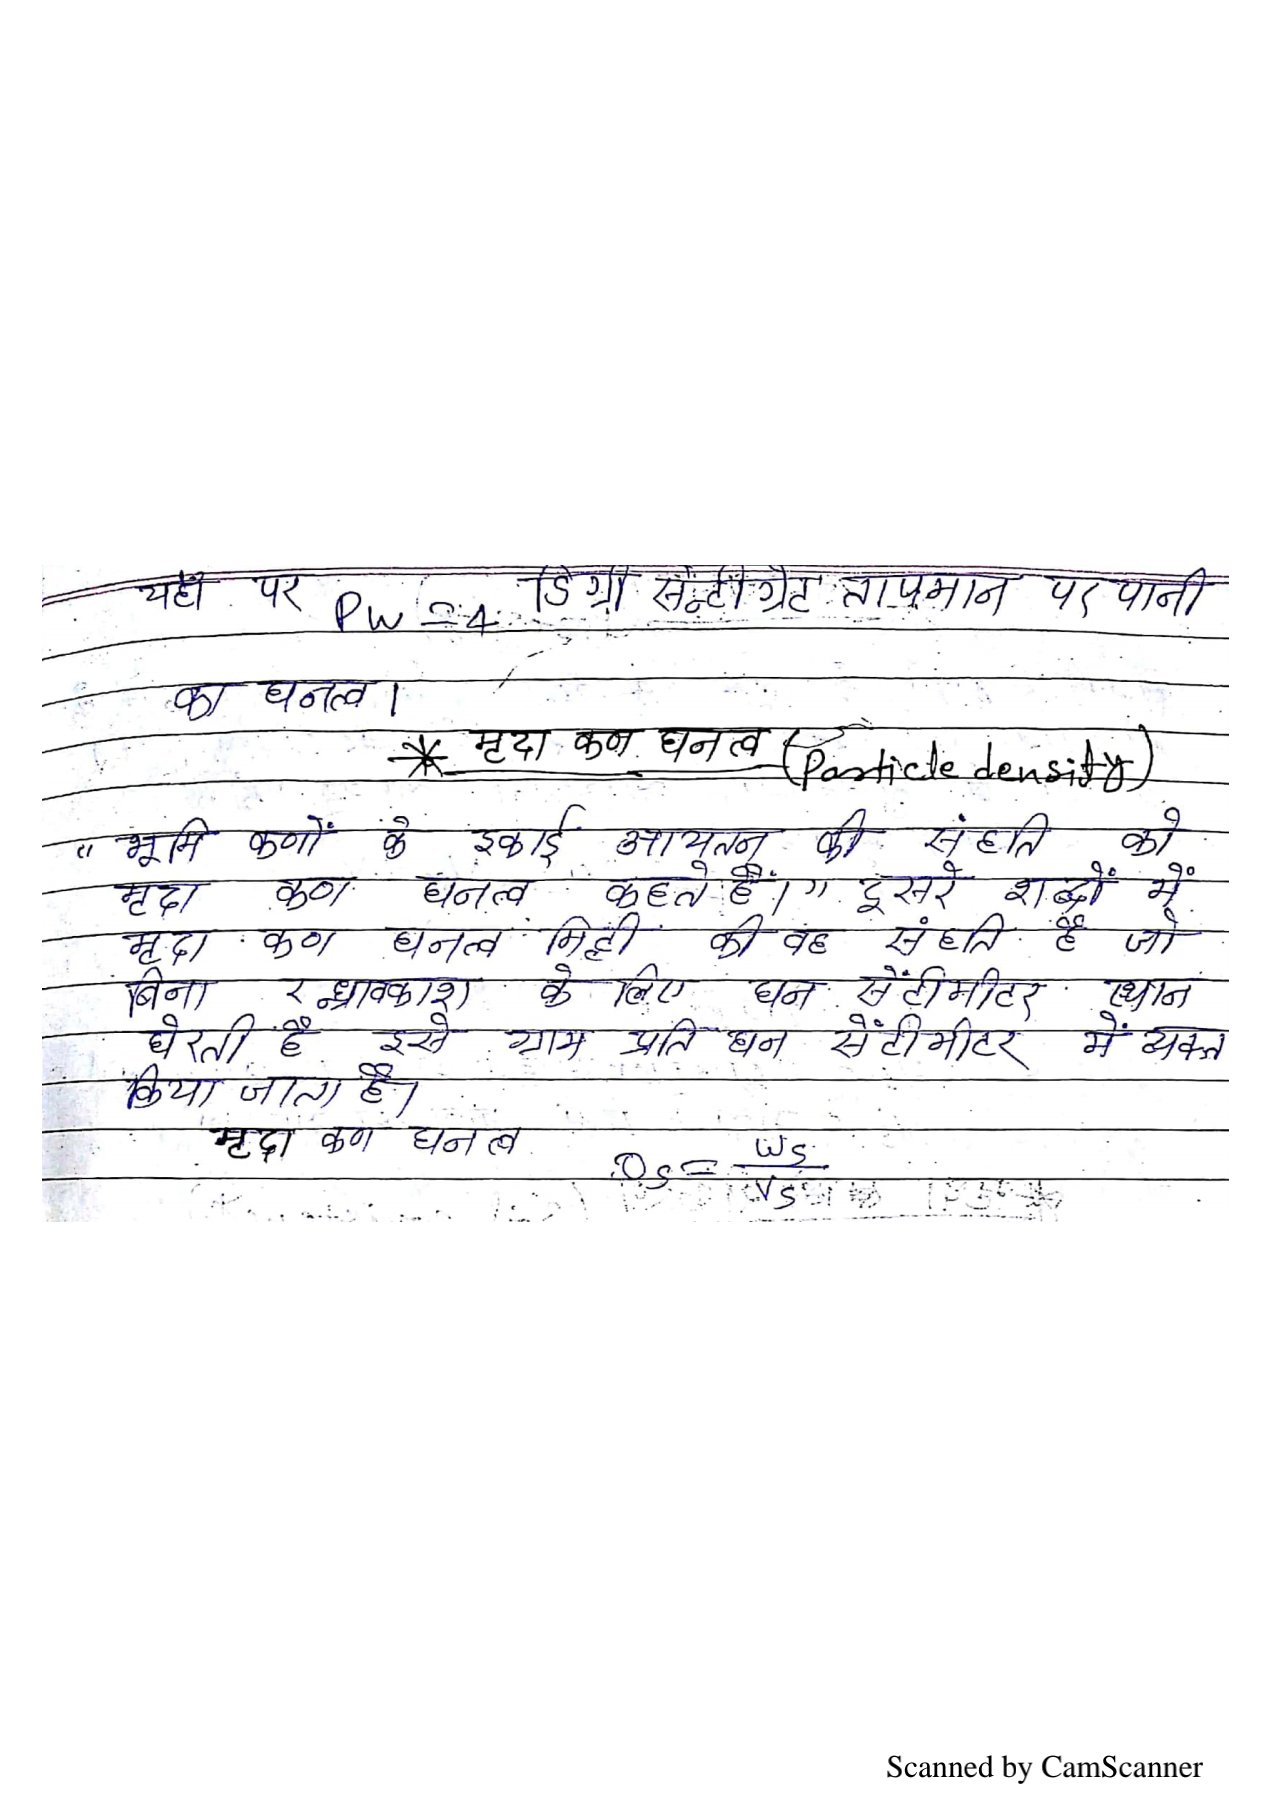 यहाँ पर Pw = 4 डिग्री सेन्टीग्रेट तापमान पर पानी
का घनत्व।
* मृदा कन घनत्व (Particle density)
“भूमि कणों के इकाई आयतन की संहति को
मृदा कण घनत्व कहते हैं।” दूसरे शब्दों में
मृदा कण घनत्व मिट्टी की वह संहति है जो
बिना रन्ध्रावकाश के लिए घन सेंटीमीटर स्थान
घेरती है इसे ग्राम प्रति घन सेंटीमीटर में व्यक्त
किया जाता है।
मृदा कण घनत्व Ds = Ws / Vs
Scanned by CamScanner